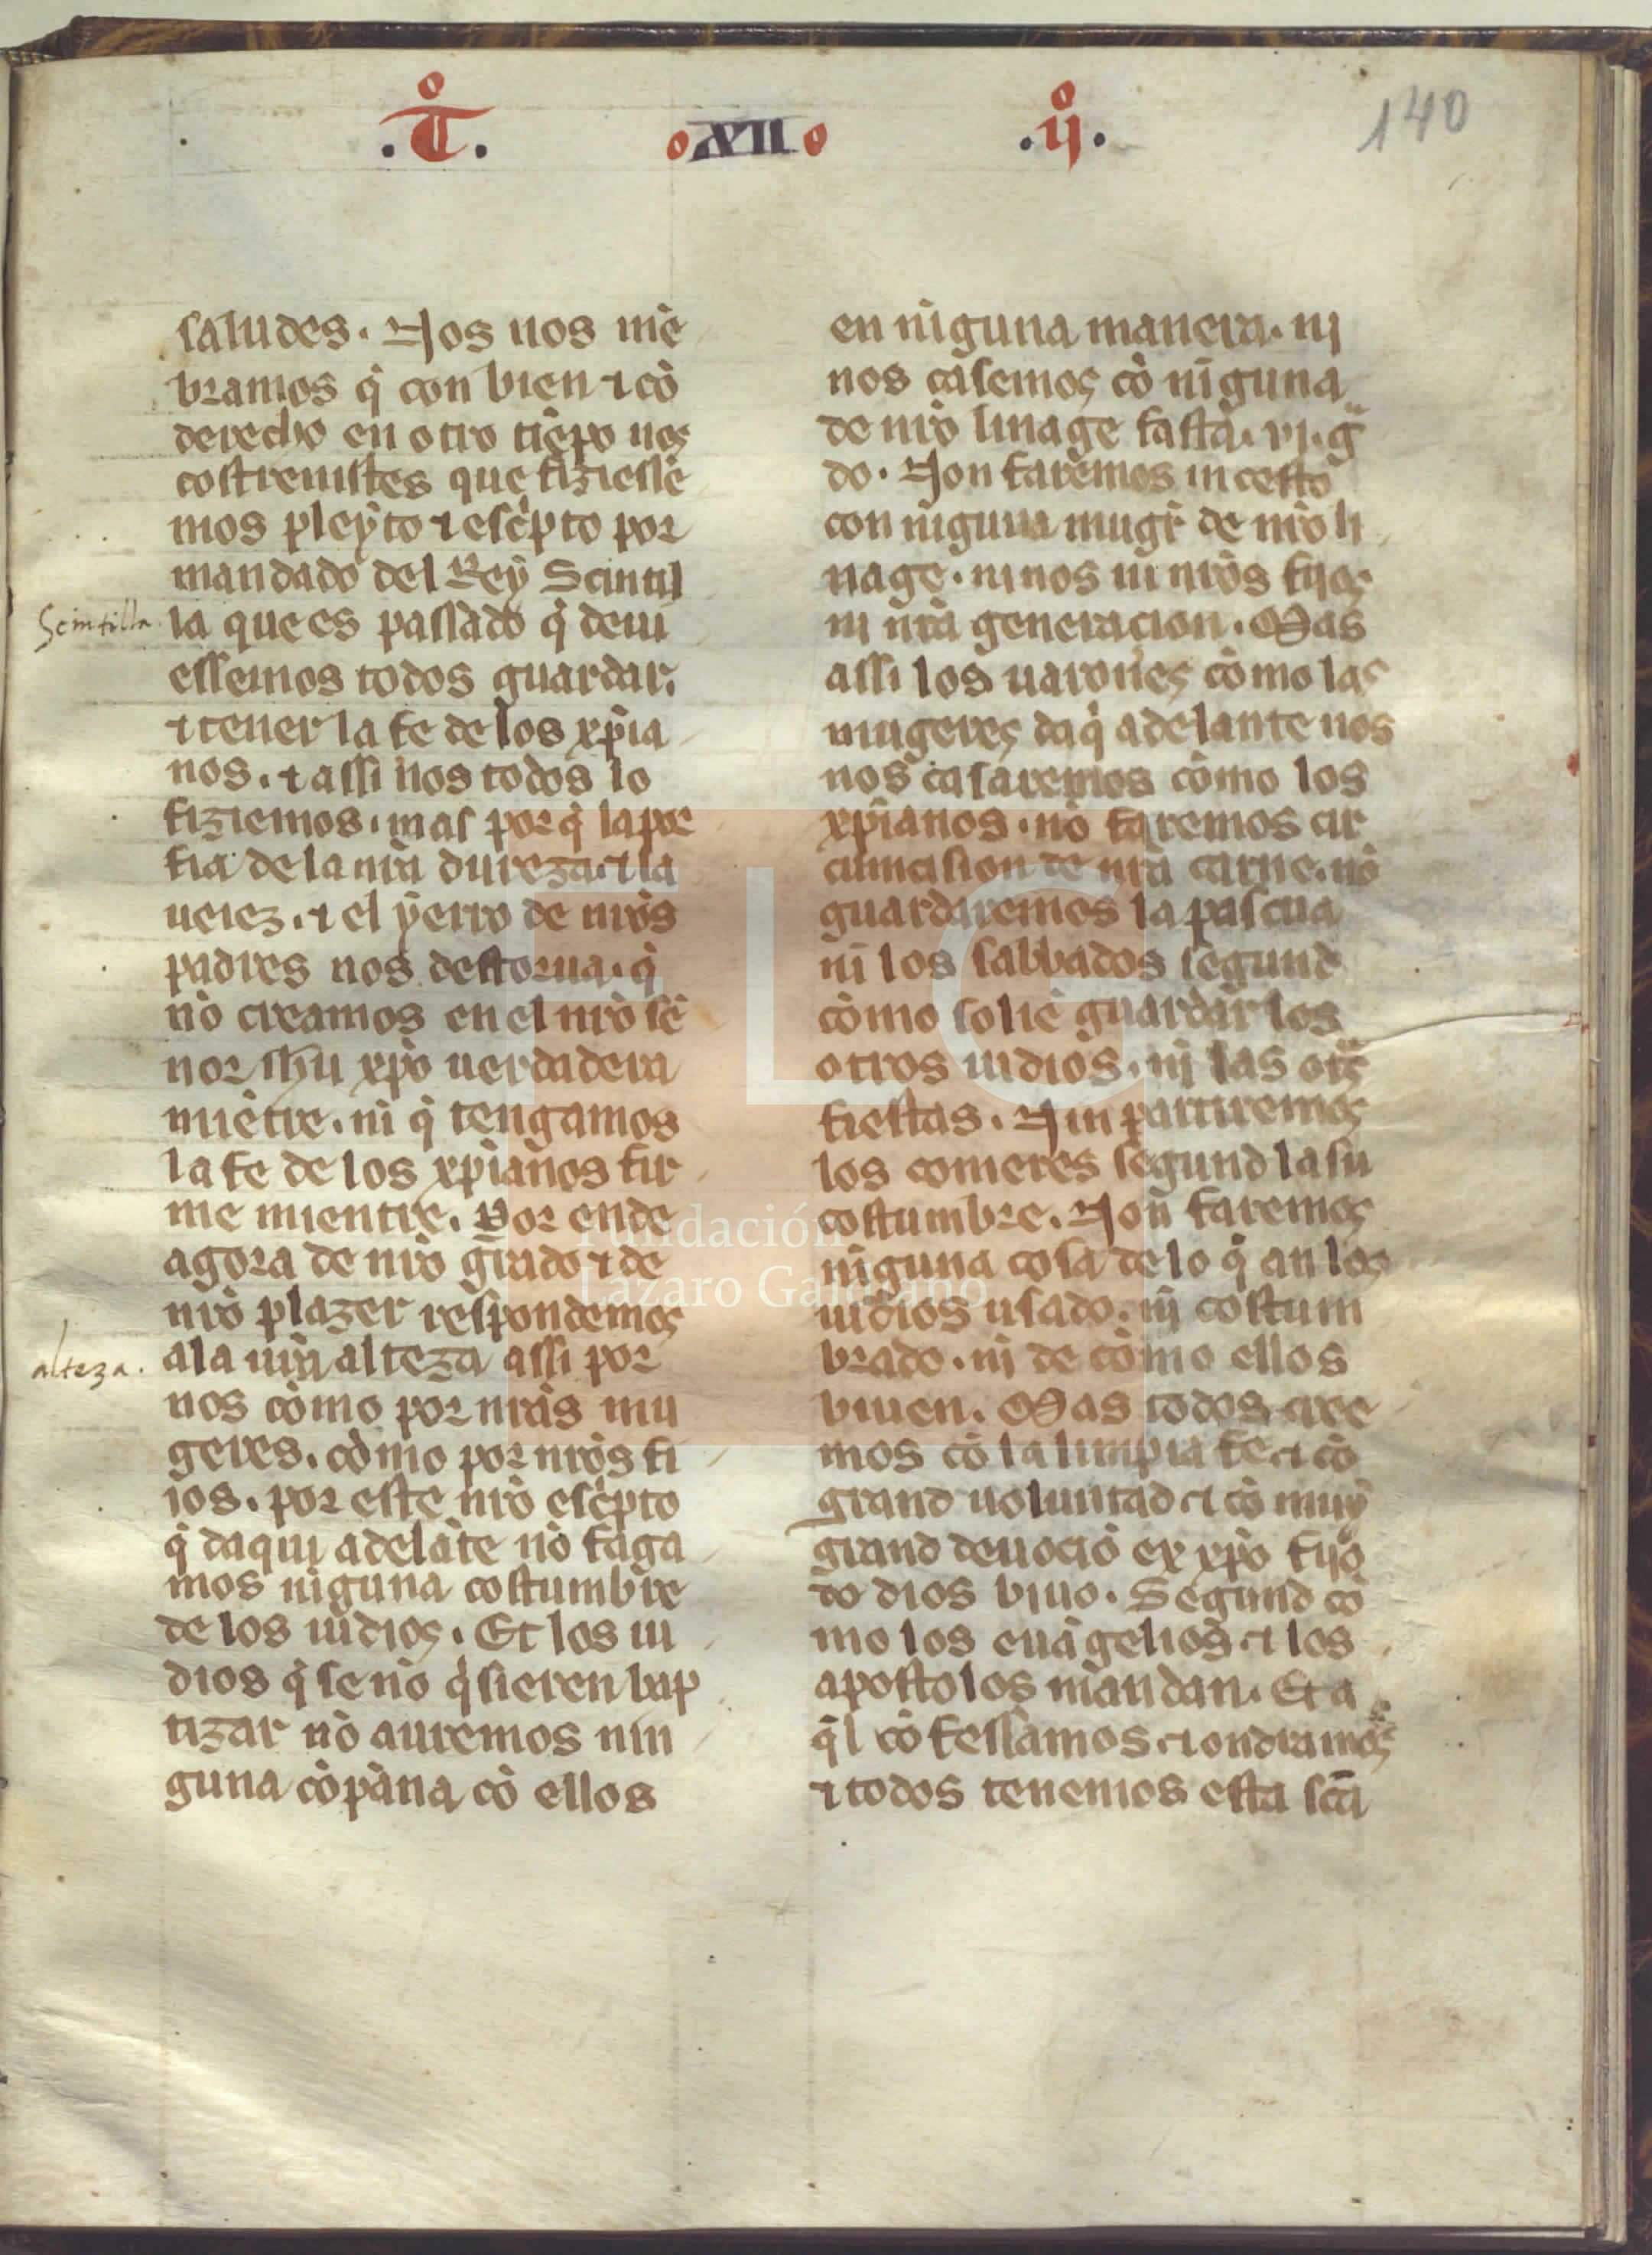 .T̊. oXIIo .ij̊.
140
saludes. Nos nos mē
bramos q̇ con bien ⁊ cō
derecho en otro tiēpo nos
costrenistes que fiziessē
mos pleyto ⁊ esc̓pto por
mandado del Rey Scintil
Scintilla
la que es passado q̇ deui
essemos todos guardar.
⁊ tener la fe de los xp̄ia
nos. ⁊ assi nos todos lo
fiziemos. mas por q̇ la por
fia de la nr̄a dureza. ⁊ la
ueiez. ⁊ el yerro de nr̄os
padres nos destorua. q̇
nō creamos en el nr̄o sē
nor ihu xp̄o uerdadera
miētre. ni q̇ tengamos
la fe de los xp̄ianos fir
me mientre. Por ende
agora de nr̄o grado ⁊ de
nr̄o plazer respondemos
alteza.
a la ur̄a alteza assi por
nos cōmo por nr̄as mu
geres. cōmo por nr̄os fi
ios. por este nr̄o esc̓pto
q̇ daqui adelāte nō faga
mos niguna costumbre
de los iudios. Et los iu
dios q̇ se nō q̇sieren bap
tizar nō auremos nin
guna cōpāna cō ellos
en niguna manera. nj
nos casemos cō niguna
de nr̄o linage fasta. vj. g̃
do. Non faremos incesto
con niguna muger̄ de nr̄o li
nage. ni nos ni nr̄os fijos
ni nr̄a generacion. Mas
assi los uarones cōmo las
mugeres daq̇ adelante nos
nos casaremos cōmo los
xp̄ianos. nō faremos cir
cuncision de nr̄a carne. nō
guardaremos la pascua
ni los sabbados segund
cōmo soliē guardar los
otros iudios. nj las otr̃s
fiestas. Nin partiremos
los comeres segund la su
costumbre. Non faremos
niguna cosa de lo q̇ an los
iudios usado. nj costum
brado. nj de cōmo ellos
biuen. Mas todos cree
mos cō la limpia fe. ⁊ cō
grand uoluntad ⁊ cō muy
grand deuociō ex xp̄o fijo
do dios biuo. Segund cō
mo los euāgelios ⁊ los
apostolos mandan. Et a
q̇l cōfessamos ⁊ ondramos
⁊ todos tenemos esta sc̄a
FLG
Fundación
Lázaro Galdiano